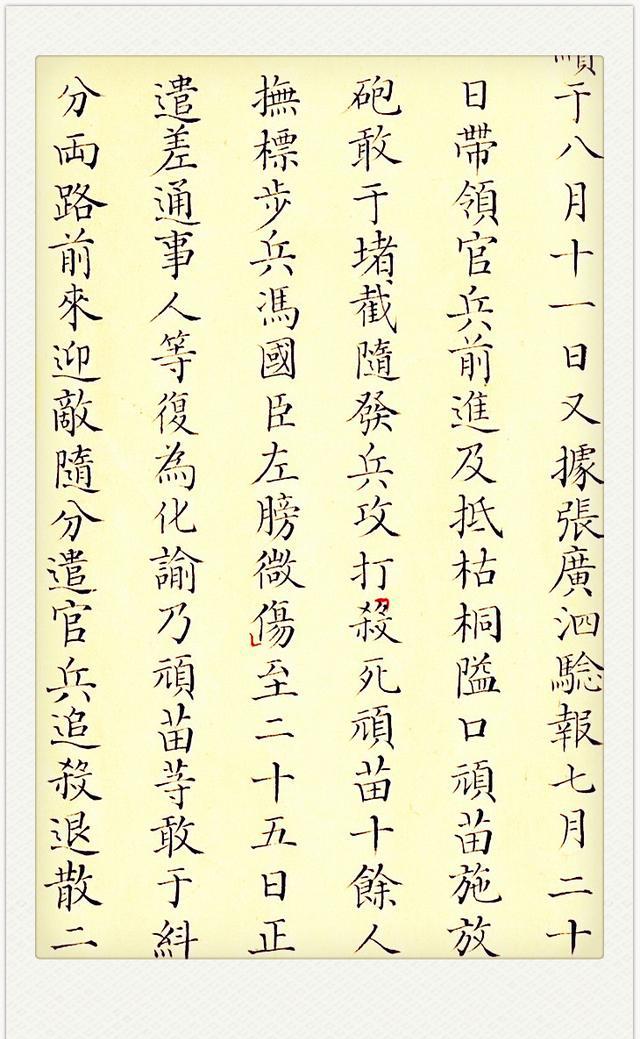 于八月十一日又據張廣泗騐報七月二十
日帶領官兵前進及抵枯桐隘口頑苗施放
砲敢于堵截隨發兵攻打殺死頑苗十餘人
撫標步兵馮國臣左膀微傷至二十五日正
遣差通事人等復為化諭乃頑苗等敢于糾
分両路前來迎敵隨分遣官兵追殺退散二